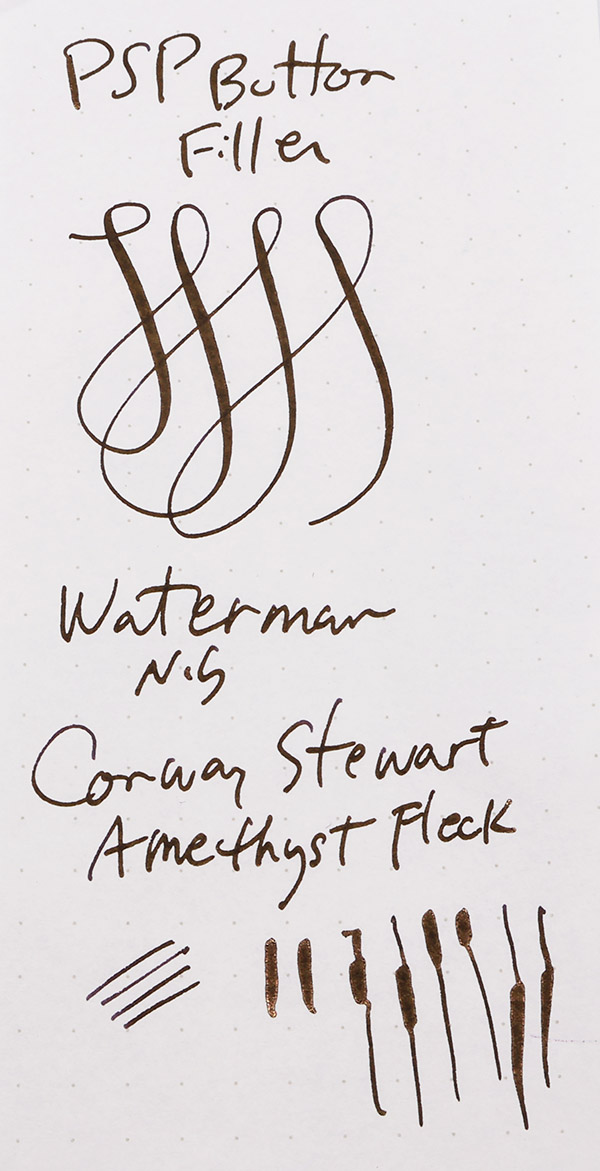 PSP Button
Filler
Waterman
Nib
Conway Stewart
Amethyst Fleck